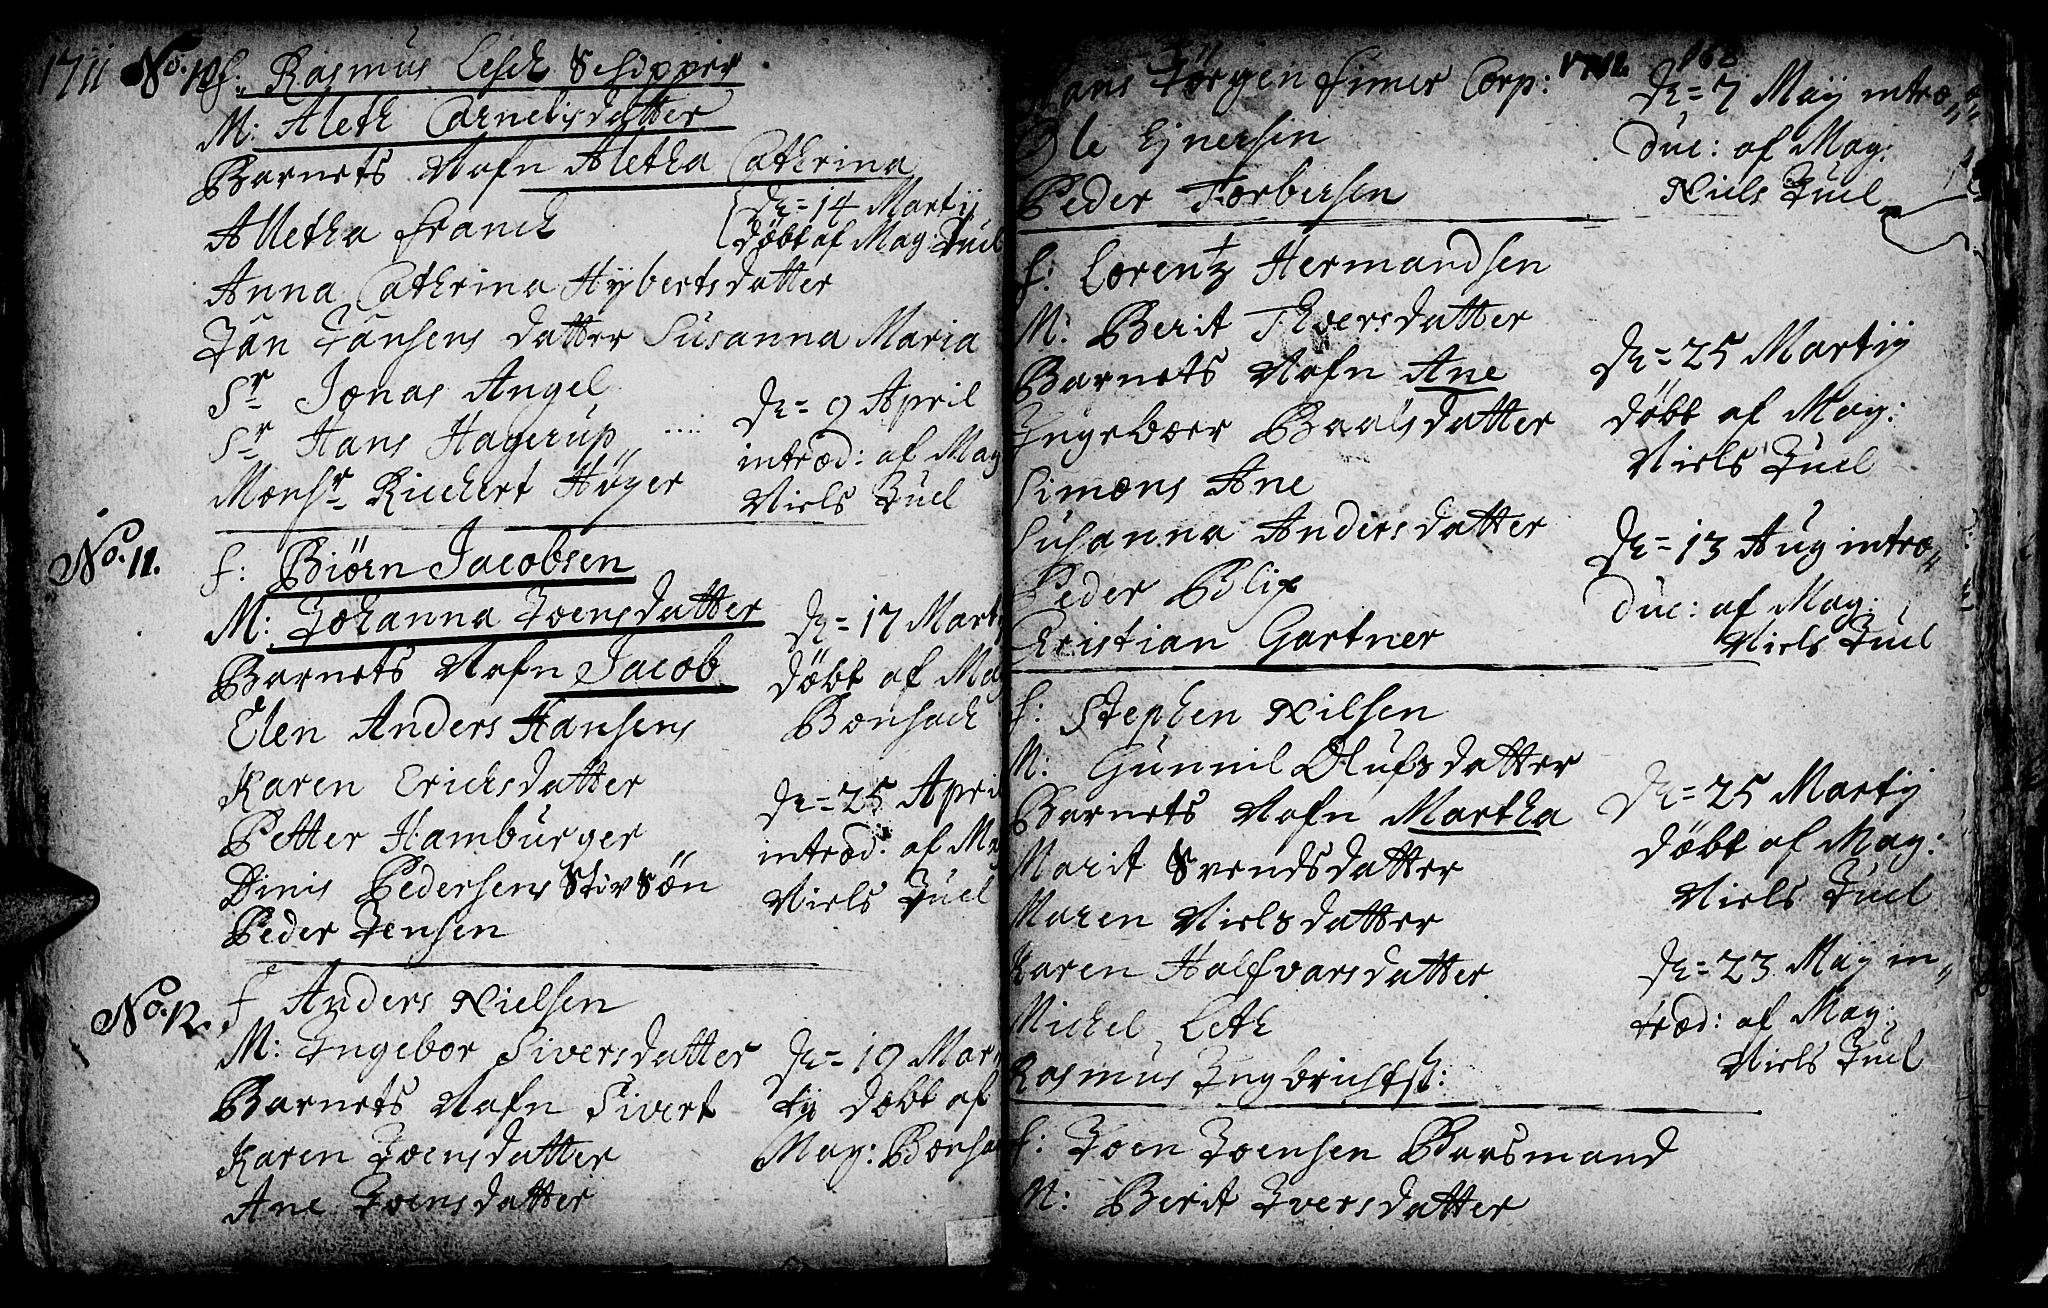 1711
No. 10 f: Rasmus Lesch Schipper
M: Aleth Cornelisdatter
Barnets Nafn Aletha Cathrina
Alletha Franck
D. = 14 Martij
døbt af Mag: Juel
Anna Cathrina Hÿbertsdatter
Jan Jansens datter Susanna Maria
Sr Jonas Angel
Sr Hans Hagerup ....
Monsr Richert Høyer
D. = 9 April
introd: af Mag
Niels Juel
No. 11.
f: Biørn Jacobsen
M: Johanna Joensdatter
Barnets Nafn Jacob
Elen Anders Hansens
Karen Ericksdatter
Petter Hamburger
Dinis Pedersens Stivsøn
Peder Jensen
D. = 17 Mart
døbt af Ma
Bonsach
D. = 25 Apri
introd: af Ma
Niels Juel
No. 12.
f Anders Nielsen
M: Ingebor Siversdatter
Barnets Nafn Sivert
Karen Joensdatter
Ane Joensdatter
D. = 19 Mar
tij døbt af
Mag: Bonsa
1711 162
Hans Jørgen Corp:
Ole Ejnersen
Peder Torbersen
D. = 7 Maÿ intro
duc: af Mag:
Niels Juel
f: Lorentz Hermandsen
M: Berit Iversdatter
Barnets Nafn Ane
Ingeboer Baalsdatter
Simons Ane
Susanna Andersdatter
Peder Blix
Christian Gartner
D. = 25 Martij
døbt af Mag:
Niels Juel
D. = 13 Aug intro
duc: af Mag:
Niels Juel
f: Stephen Nilsen
M: Gunnil Olufsdatter
Barnets Nafn Martha
Marit Svendsdatter
Maren Nielsdatter
Karen Halfvarsdatter
Michel Leth
Rasmus Ingbrichtst:
D. = 25 Martij
døbt af Mag:
Niels Juel
D. = 23 Maÿ in
trod: af Mag:
Niels Juel
f: Joen Joensen Barsmand
M: Berit Iversdatter